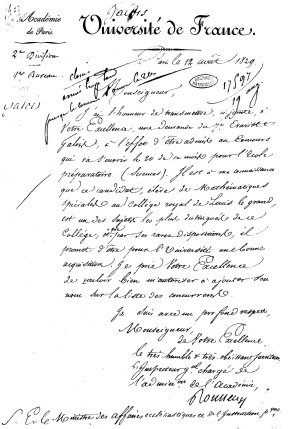 Académie
de Paris.
Université de France.
2e Division
1er Bureau
le 12 août 1829
17597
Galois
Monseigneur,
J'ai l'honneur de transmettre, ci-jointe à
Votre Excellence, une demande du Sr Evariste
Galois, à l'effet d'être admis au concours
qui va s'ouvrir le 20 de ce mois pour l'Ecole
préparatoire (Sciences). Il est à ma connaissance
que ce candidat, élève de Mathématiques
spéciales au Collège royal de Louis le grand,
est un des sujets les plus distingués de ce
Collège, et par ses rares dispositions, il
promet d'être pour l'Université une bonne
acquisition. Je prie Votre Excellence
de vouloir bien m'autoriser à ajouter son
nom sur la liste des concurrents.
Je suis avec un profond respect,
Monseigneur,
de Votre Excellence
le très humble & très obéissant serviteur
l'Inspecteur gl chargé de
l'admin de l'Académie,
Rousselle
S. E. le Ministre des affaires ecclésiastiques et de l'Instruction pque